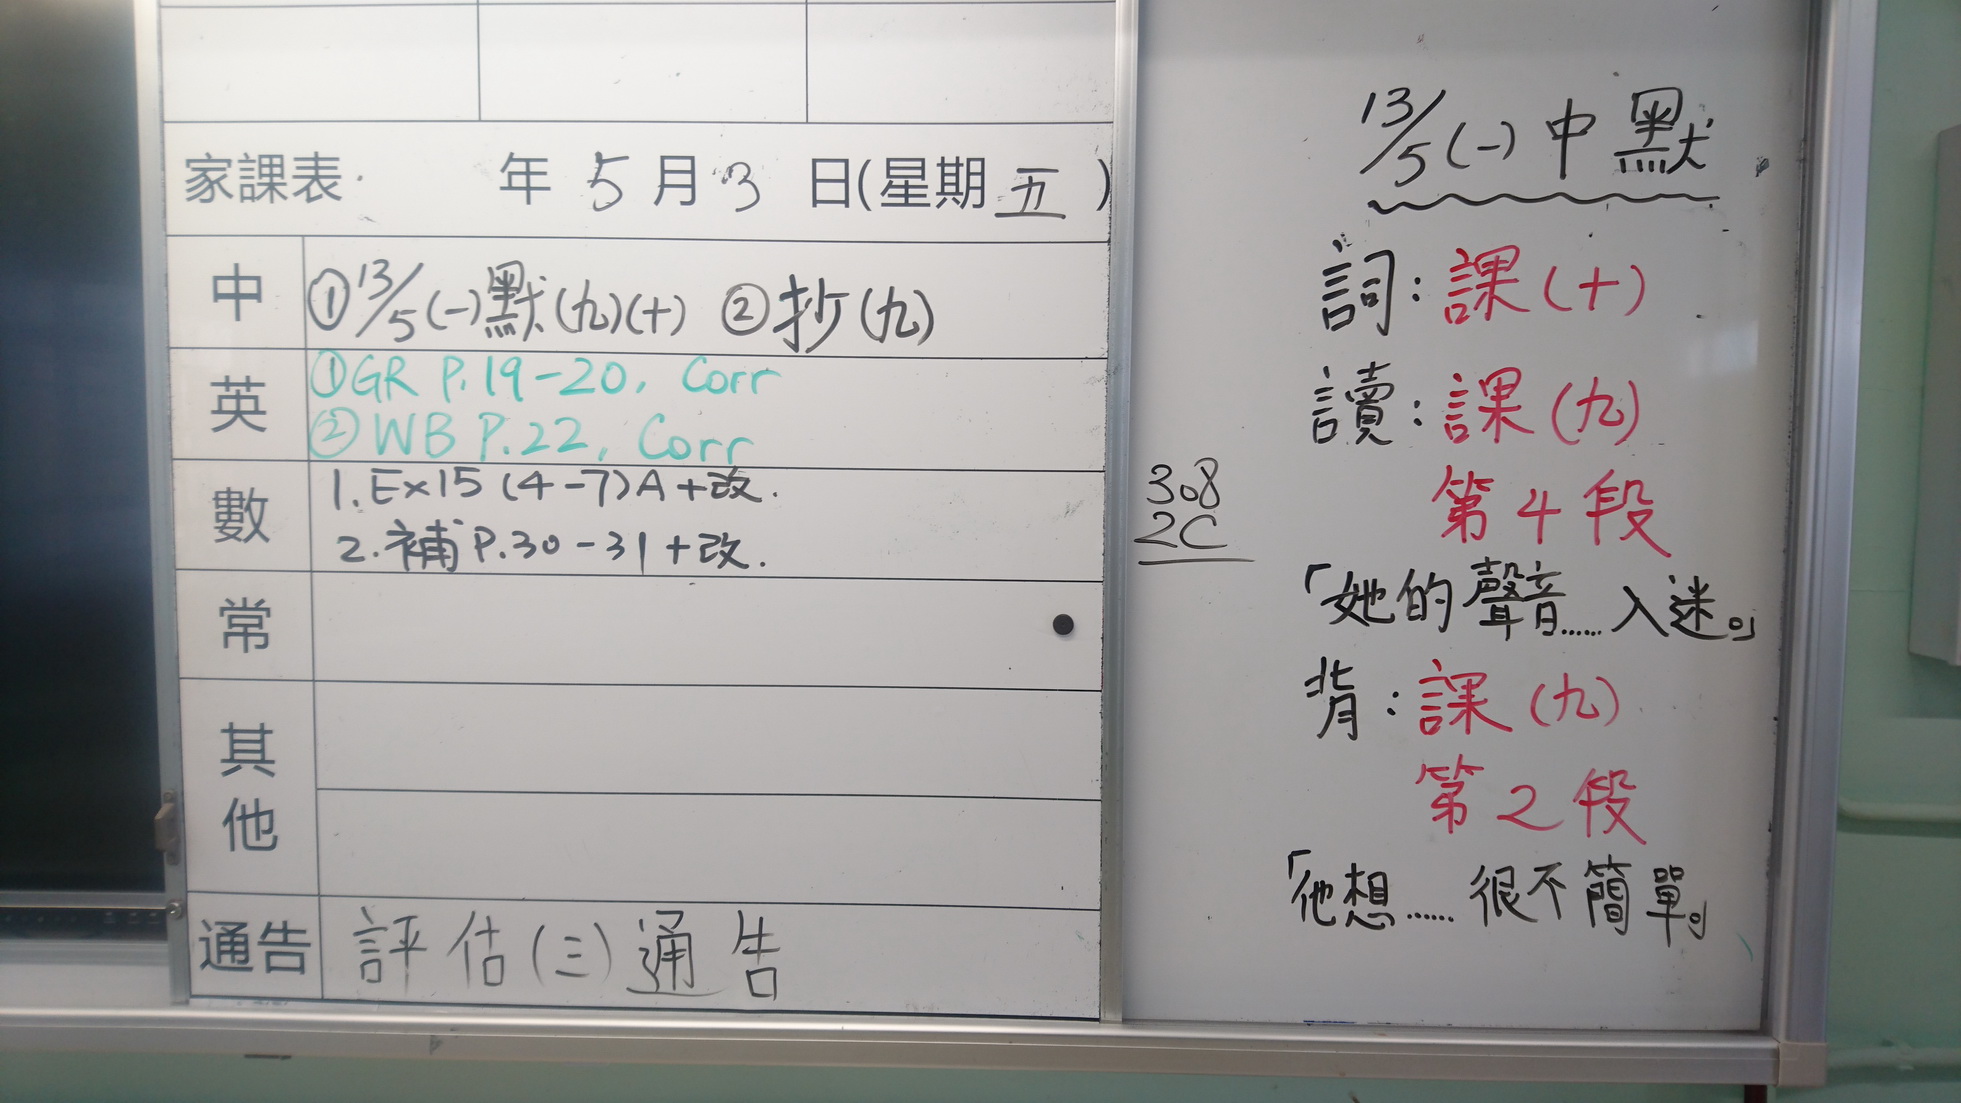 家課表 年 5 月 3 日(星期 五 )
中 ①13/5(一)默(九)(十) ②抄(九)
英 ①GR P.19-20, Corr
②WB P.22, Corr
數 1. Ex15 (4-7)A+改.
2. 補 P.30-31+改.
常
其他
通告 評估(三)通告
308
2C
13/5(一)中默
詞：課(十)
讀：課(九)
第4段
「她的聲音……入迷。」
背：課(九)
第2段
「他想……很不簡單。」